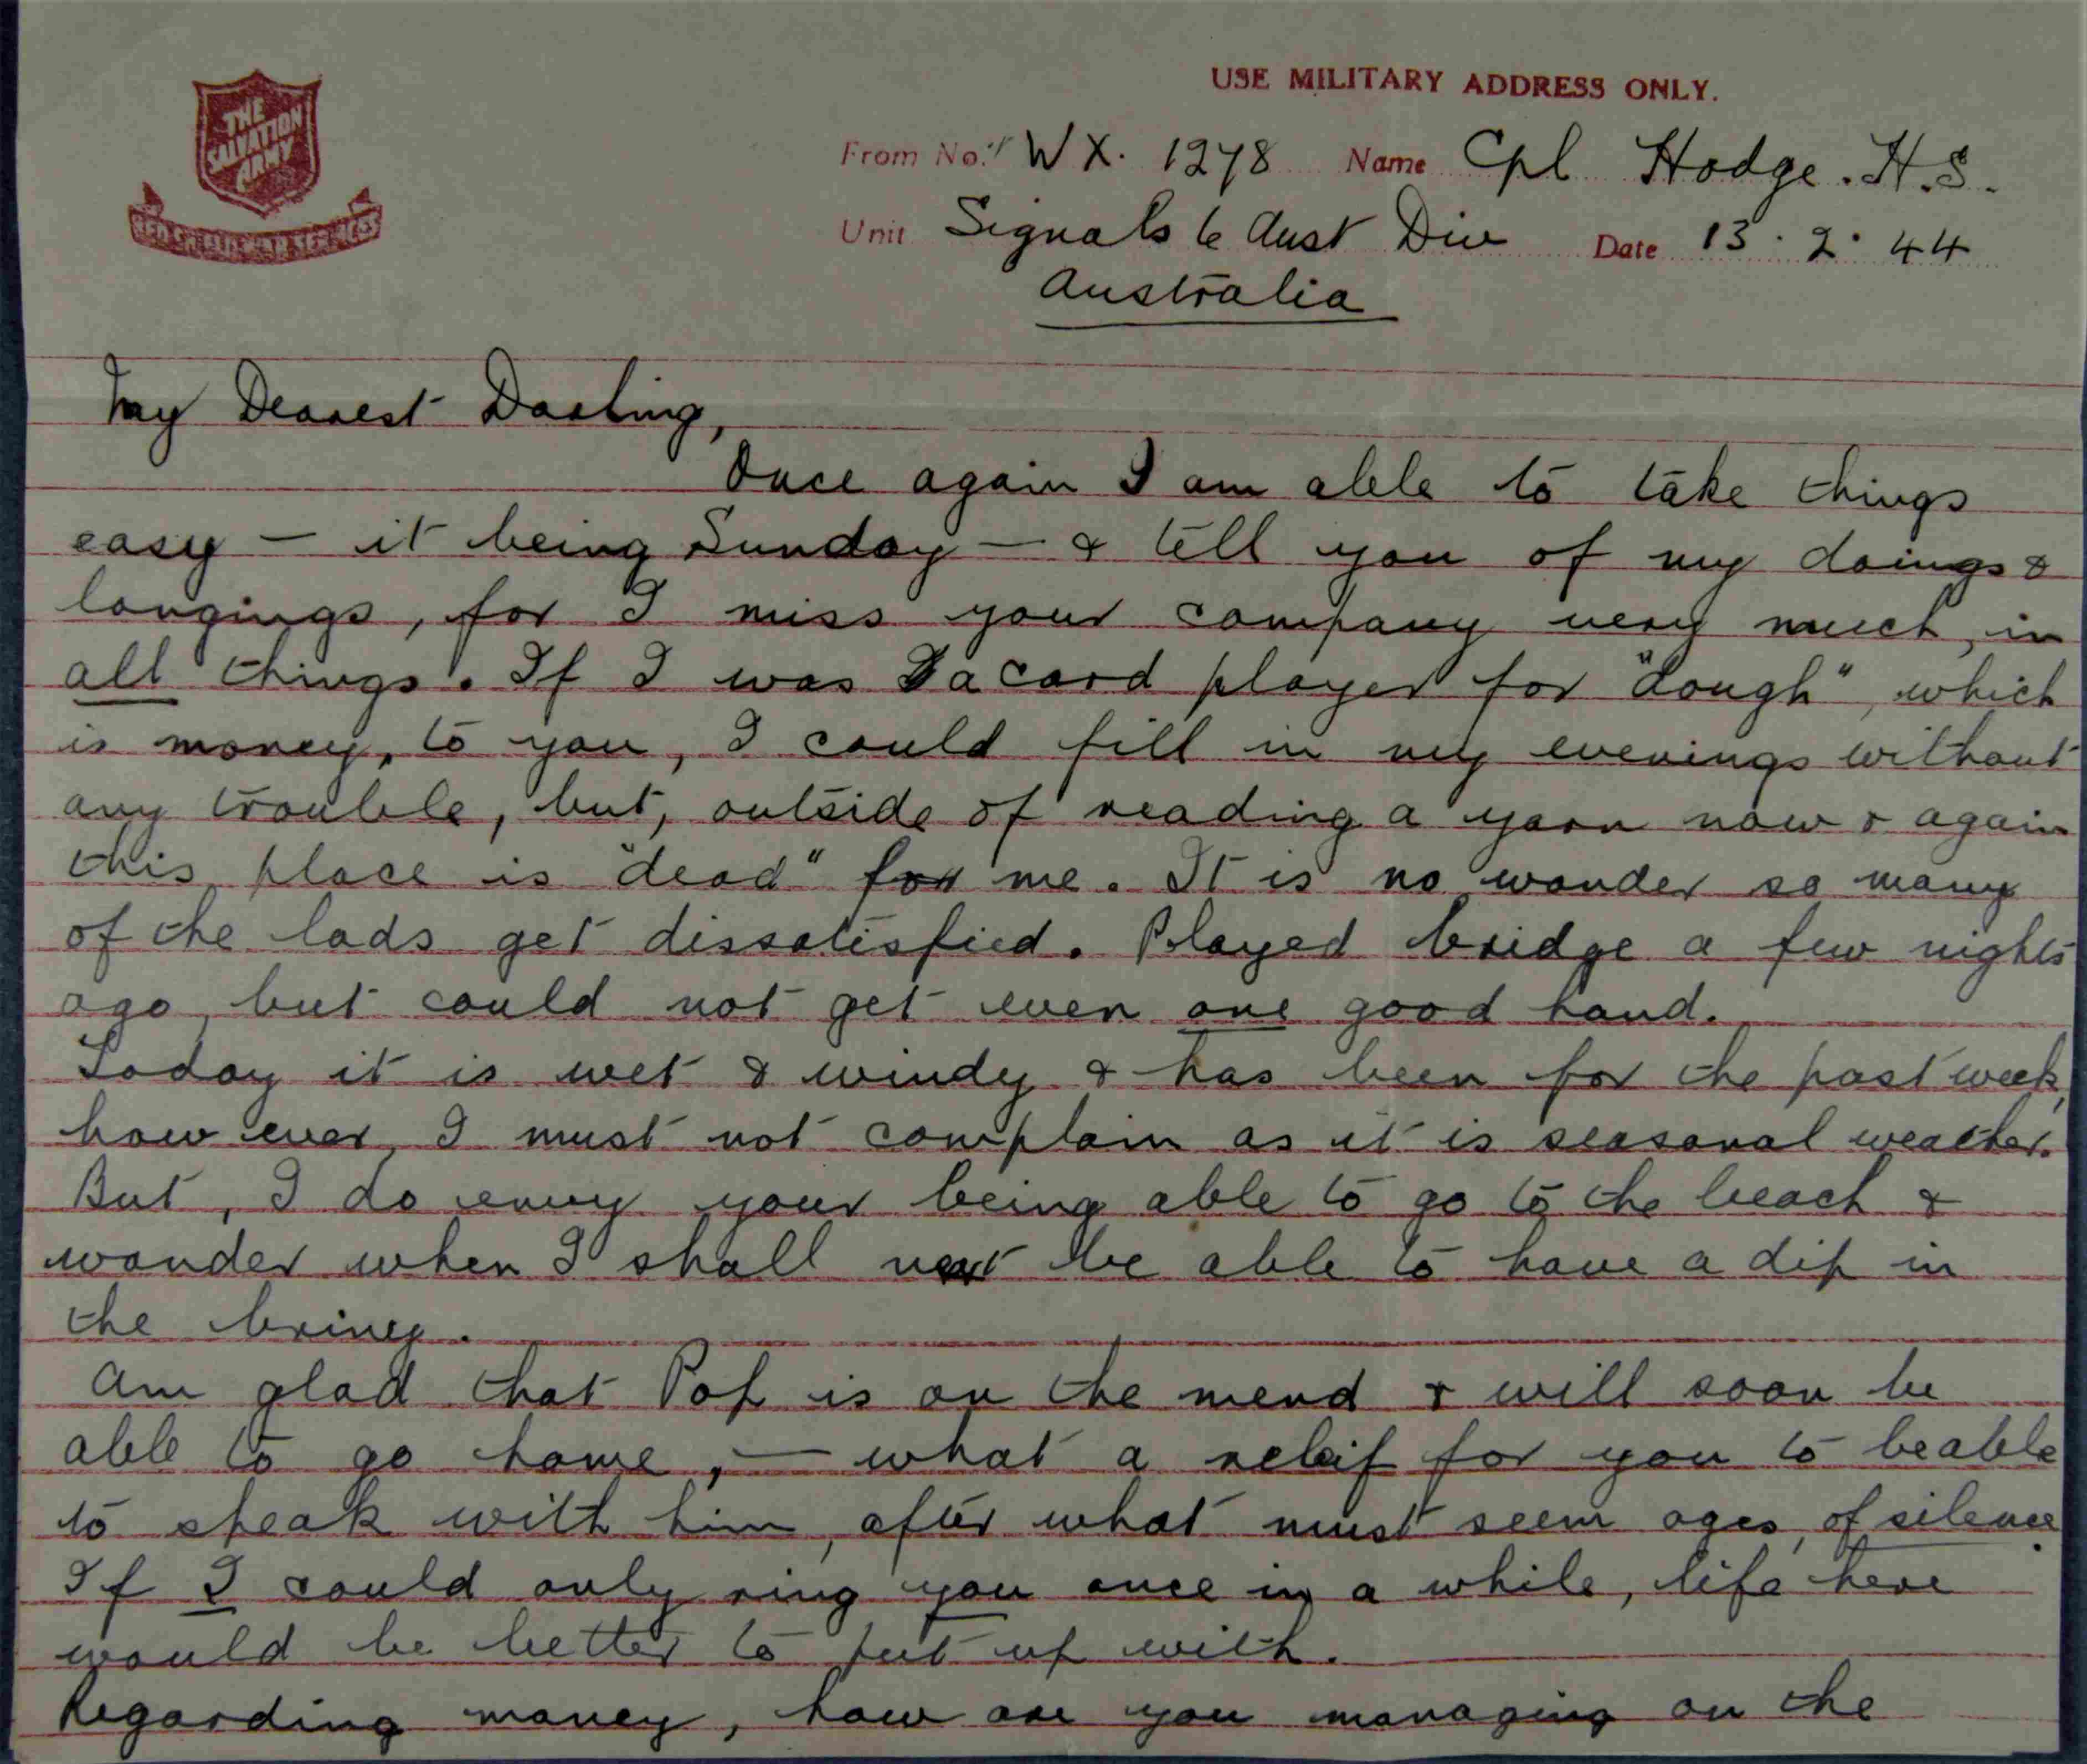 THE
SALVATION
ARMY
RED SHIELD WAR SERVICES
USE MILITARY ADDRESS ONLY.
From No. WX. 1278 Name Cpl Hodge. H.S.
Unit Signals 6 Aust Div Date 13. 2. 44
Australia
My Dearest Darling,
Once again I am able to take things
easy – it being Sunday – & tell you of my doings &
longings, for I miss your company very much, in
all things. If I was a card player for "dough", which
is money, to you, I could fill in my evenings without
any trouble, but, outside of reading a yarn now & again
this place is "dead" for me. It is no wonder so many
of the lads get dissatisfied. Played bridge a few nights
ago, but could not get even one good hand.
Today it is wet & windy & has been for the past week,
how ever, I must not complain as it is seasonal weather.
But, I do envy your being able to go to the beach &
wonder when I shall next be able to have a dip in
the briney.
Am glad that Pop is on the mend & will soon be
able to go home, – what a releif for you to be able
to speak with him, after what must seem ages, of silence.
If I could only ring you once in a while, life here
would be better to put up with.
Regarding money, how are you managing on the